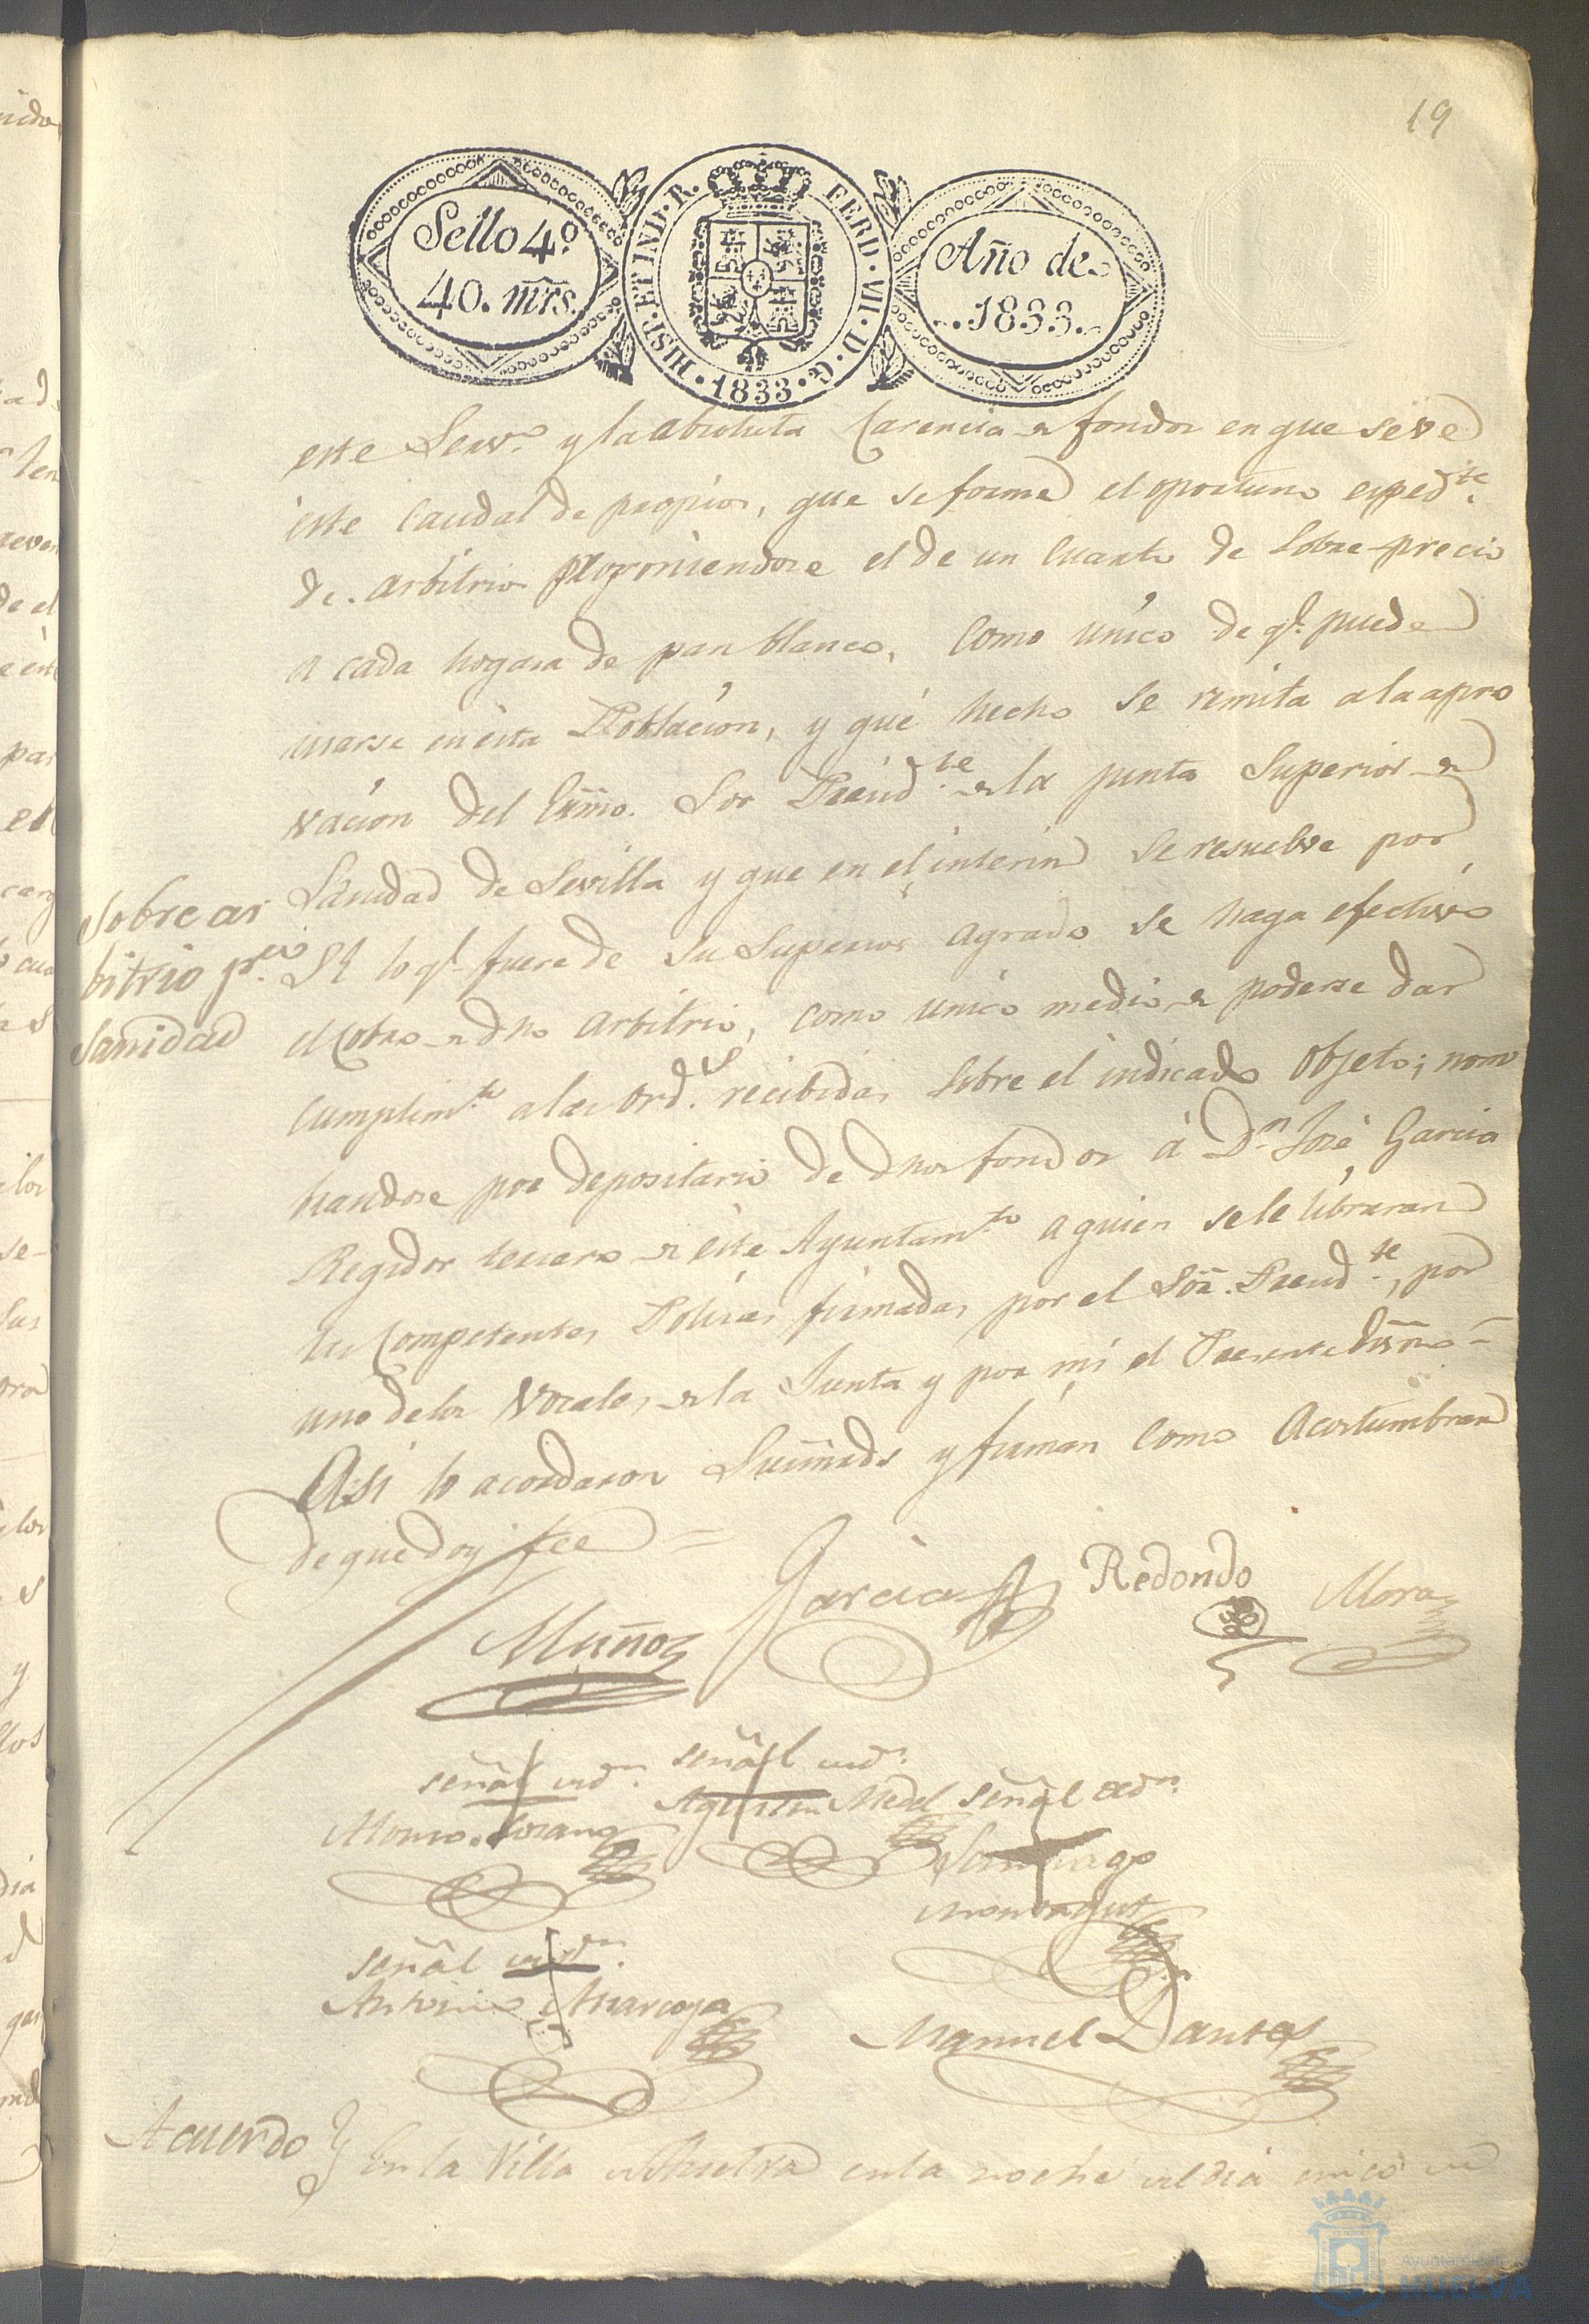 19
Sello 4º
40. mrs.
HISP. ET IND. R. FERD. VII. D. G. 1833
Año de
1833.
este Serv.º y la absoluta Carencia de fondos en que se ve
este Caudal de propios, que se forme el oportuno exped.te
de arbitrios proponiendose el de un Cuarto de Sobre-precio
a cada hogasa de pan blanco, Como único de q.e puede
usarse en esta Poblacion, y qué hecho Se remita a la apro
vacion del Exmo. Sor Presid.te de la junta Superior de
Sanidad de Sevilla y que en el interin Se resuelve por
S.E lo q.e fuere de Su Superior agrado Se haga efectivo
el Cobro de dho arbitrio, Como unico medio de poderse dar
Cumplim.to a las Ord.s recibidas Sobre el indicado Objeto; nom
brandose por depositario de dhos fondos á D.n José Garcia
Regidor tercero de este Ayuntam.to a quien se le libraran
las Competentes Polizas firmadas por el Sor. Presid.te, por
uno de los Vocales de la Junta y por mi el Presente Essno =
Asi lo acordaron Sus mrds y firman Como Acostumbran
de que doy fee =
Sobre ar
bitrio p.ra
Sanidad
Muñoz
Garcia
Redondo
Mora
señal de
Alonso Lozano
señal de
Agustin Medel
señal de
Santiago
Montagut
señal de
Antonio
Manuel Dantes
Acuerdo } En la Villa de Huelva en la noche del dia cinco de
Ayuntamiento
HUELVA